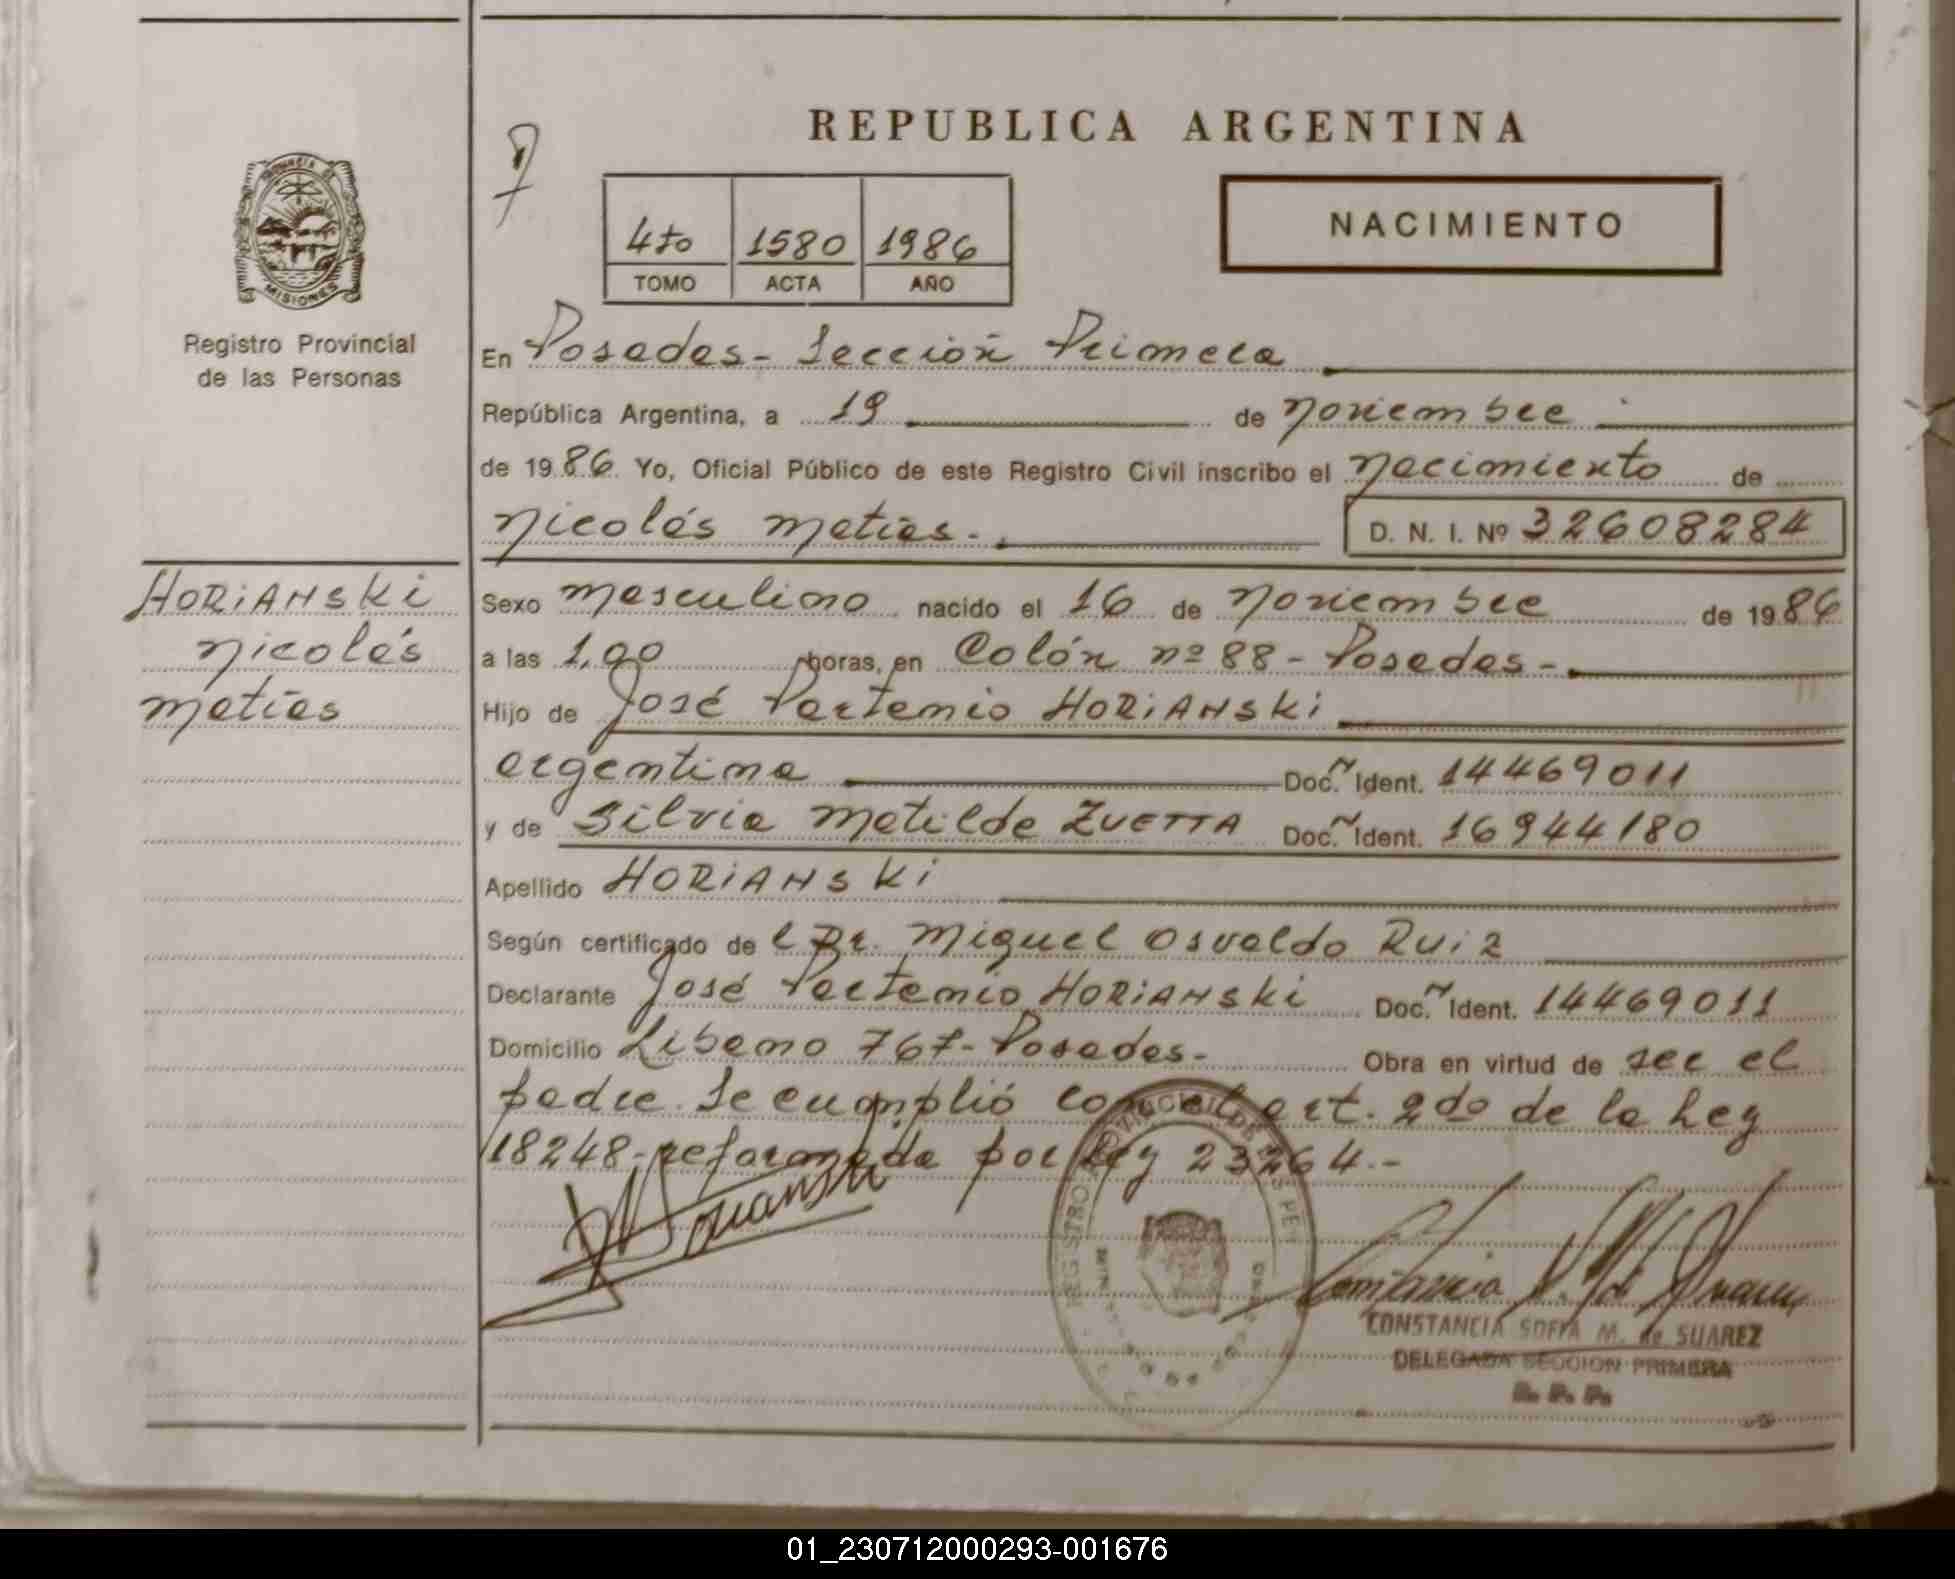 REPUBLICA ARGENTINA
PROVINCIA DE
MISIONES
Registro Provincial
de las Personas
4to 1580 1986
TOMO ACTA AÑO
NACIMIENTO
En Posadas - Sección Primera
República Argentina, a 19 de noviembre
de 1986. Yo, Oficial Público de este Registro Civil inscribo el nacimiento de
Nicolás Matías.- D. N. I. Nº 32608284
HORIANSKI
Nicolás
Matías
Sexo masculino nacido el 16 de noviembre de 1986
a las 1,00 horas, en Colón nº 88 - Posadas -
Hijo de José Partemio HORIANSKI
argentina Doc. Ident. 14469011
y de Silvia Matilde ZUETTA Doc. Ident. 16944180
Apellido HORIANSKI
Según certificado del Dr. Miguel Osvaldo Ruiz
Declarante José Partemio HORIANSKI Doc. Ident. 14469011
Domicilio Líbano 767 - Posadas - Obra en virtud de ser el
padre. Se cumplió con el art. 2do de la Ley
18248 - reformada por Ley 23264.-
CONSTANCIA SOFIA M. de SUAREZ
DELEGADA SECCION PRIMERA
R. P. P.
01_230712000293-001676